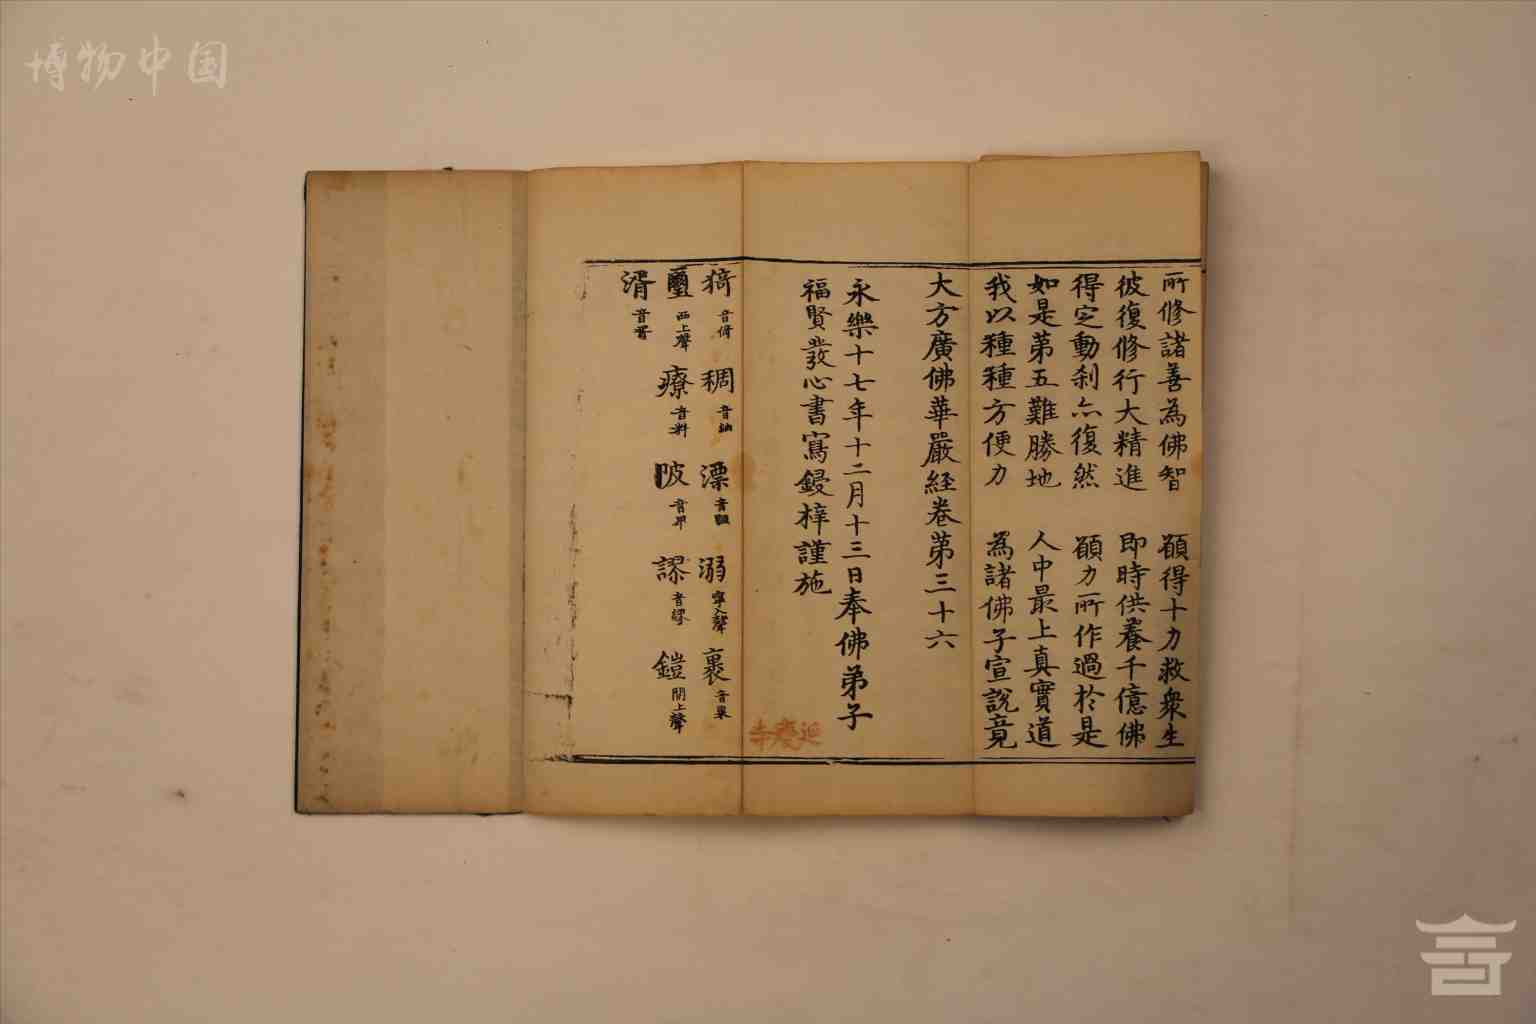 博物中国
所修諸善為佛智　願得十力救衆生
彼復修行大精進　即時供養千億佛
得定動刹亦復然　願力所作過於是
如是第五難勝地　人中最上真實道
我以種種方便力　為諸佛子宣說竟
大方廣佛華嚴経卷第三十六
永樂十七年十二月十三日奉佛弟子
福賢發心書寫鋟梓謹施
延慶寺
猗　稠　漂　溺 寧入聲　裹 音果
璽 西上聲　療 音料　陂　謬　鎧 開上聲
湑